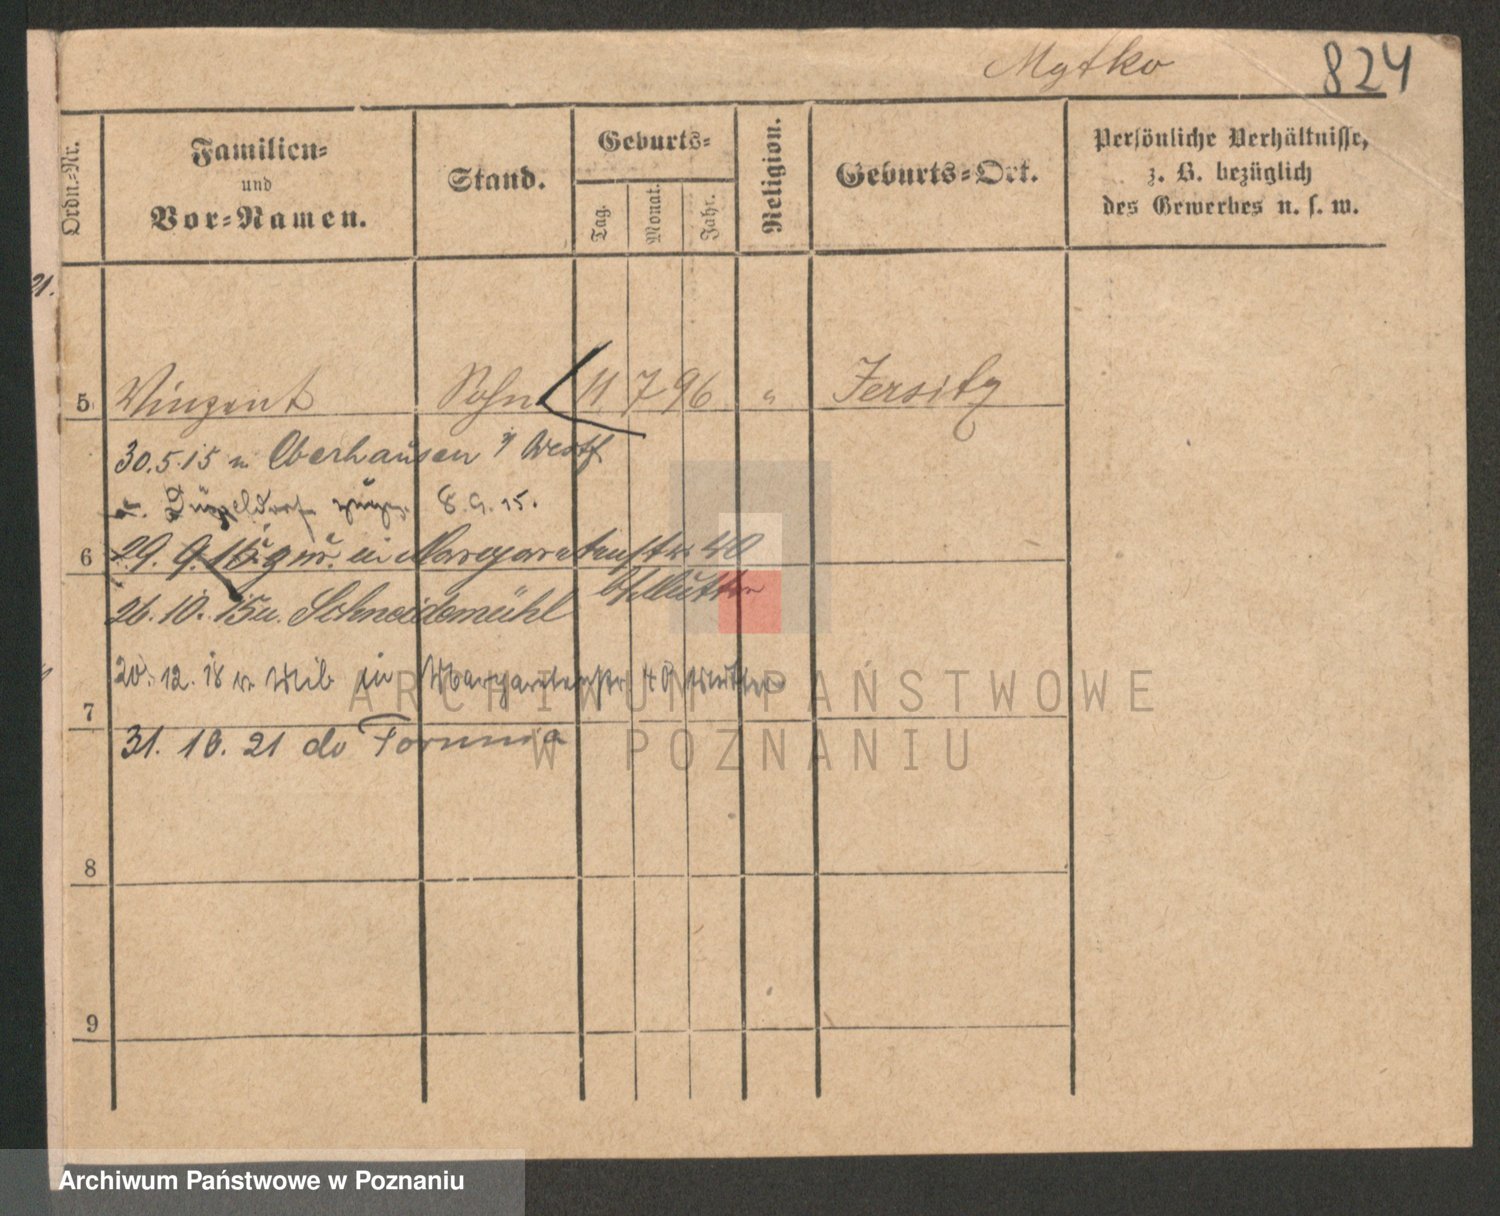 Mytko 824
Ordn.-Nr.
Familien-
und
Vor-Namen.
Stand.
Geburts-
Tag.
Monat.
Jahr.
Religion.
Geburts-Ort.
Persönliche Verhältnisse,
z. B. bezüglich
des Gewerbes u. s. w.
21.
5 Vinzent Sohn 11 7 96 " Jersitz
30.5.15 n Oberhausen Westf
a. Düsseldorf 8.9.15.
6 29. 9. 15. in Margaretenstr 40
b/Mutter
26. 10. 15 u. Schneidemühl
20. 12. 18 v. Mil in Margaretenstr 40 Mutter
7
31. 10. 21 do Torunia
8
9
ARCHIWUM PAŃSTWOWE
W POZNANIU
Archiwum Państwowe w Poznaniu